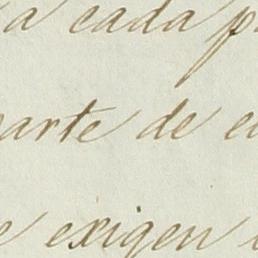 a cada
parte de
exigen